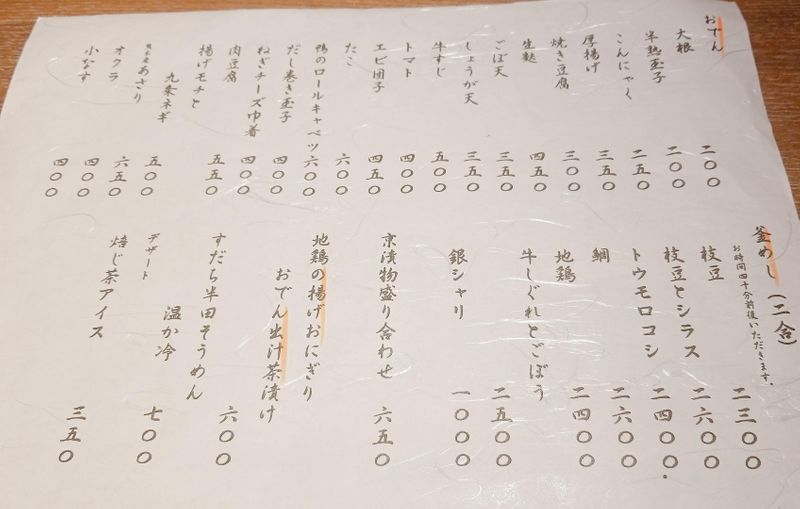 おでん
大根 二〇〇
半熟玉子 二〇〇
こんにゃく 二五〇
厚揚げ 三五〇
焼き豆腐 三〇〇
生麩 四五〇
ごぼ天 三五〇
しょうが天 三五〇
牛すじ 五〇〇
トマト 四〇〇
エビ団子 四五〇
たこ 六〇〇
鴨のロールキャベツ 六〇〇
だし巻き玉子 四〇〇
ねぎチーズ巾着 四〇〇
肉豆腐 五五〇
揚げモチと
九条ネギ 五〇〇
熊本産あさり 六五〇
オクラ 四〇〇
小なす 四〇〇
釜めし（二合）
お時間四十分前後いただきます。
枝豆 二三〇〇
枝豆とシラス 二六〇〇
トウモロコシ 二四〇〇
鯛 二六〇〇
地鶏 二四〇〇
牛しぐれとごぼう 二五〇〇
銀シャリ 一〇〇〇
京漬物盛り合わせ 六五〇
地鶏の揚げおにぎり
おでん出汁茶漬け 六〇〇
すだち半田そうめん
温か冷 七〇〇
デザート
焙じ茶アイス 三五〇